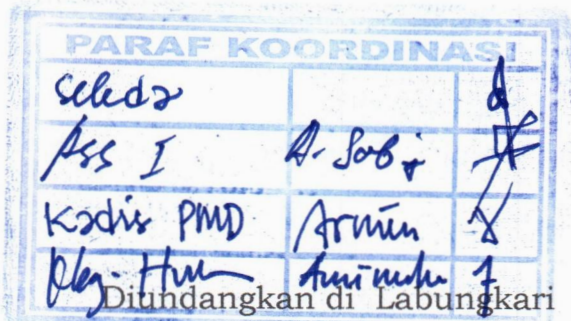 PARAF KOORDINASI
Sekda
Ass I A. Sabi
Kadis PMD Armin
Diundangkan di Labungkari